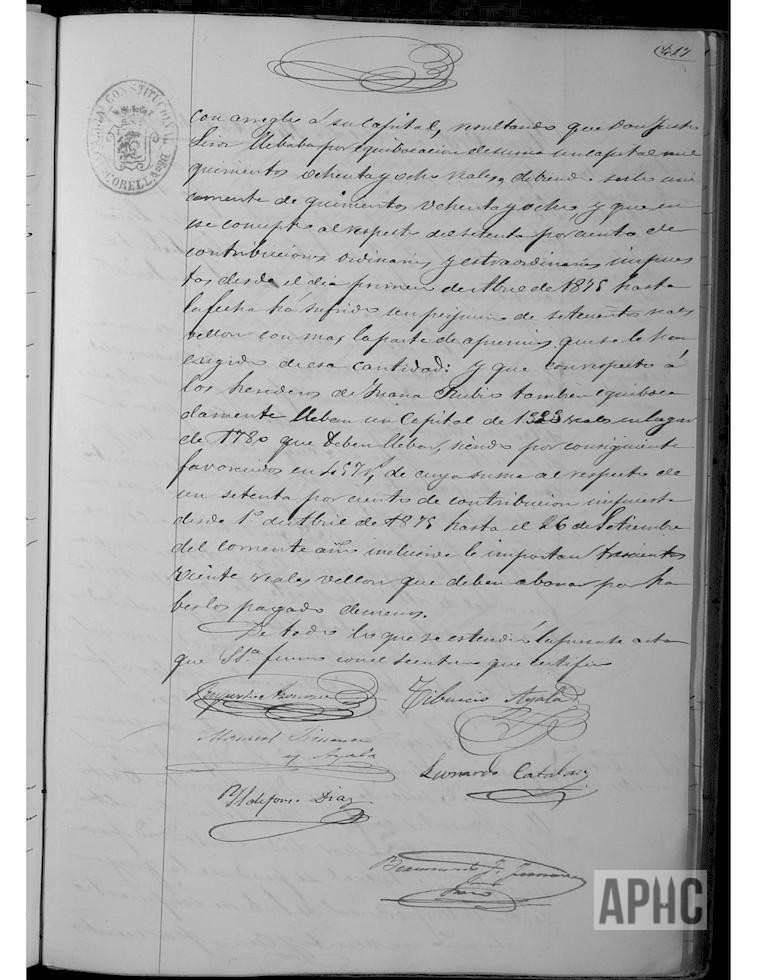 417
con arreglo á su Capital, resultando que Don Justo
llebaba por equibocacion demas un Capital mil
quinientos ochenta y ocho reales, debiendo serlo uni
camente de quinientos ochenta y ocho, y que en
ese concepto al respecto del setenta por ciento de
contribuciones ordinarias y estraordinarias impues
tas desde el dia primero de Abril de 1875 hasta
la fecha há sufrido un perjuicio de setecientos reales
vellon con mas la parte de apremios que se le han
exigido de esa cantidad: y que con respecto á
los herederos de Juana Rubio tambien equiboca
damente lleban un Capital de 1323 reales en lugar
de 1780 que deben llebar, siendo por consiguiente
favorecidos en 457 r.s, de cuya suma al respecto de
un setenta por ciento de contribucion impuesta
desde 1º de Abril de 1875 hasta el 26 de Setiembre
del corriente año inclusive le importan trescientos
veinte reales vellon que deben abonar por ha
berlos pagado demenos.
De todo lo que se estendió la presente acta
que S.Sª firma con el Secretario que certifico
Tiburcio Ayala
Manuel Jimenez
y Ayala
Leonardo Catalan
Yldefonso Diaz
APHC